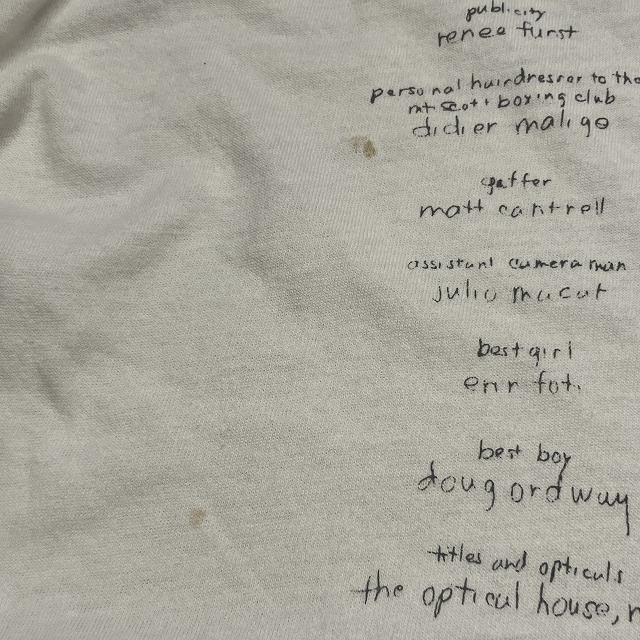 publicity
renee furst
personal hairdresser to the
mt. scott boxing club
didier malige
gaffer
matt cantrell
assistant camera man
julio macat
best girl
foti
best boy
doug ordway
titles and opticals
the optical house,